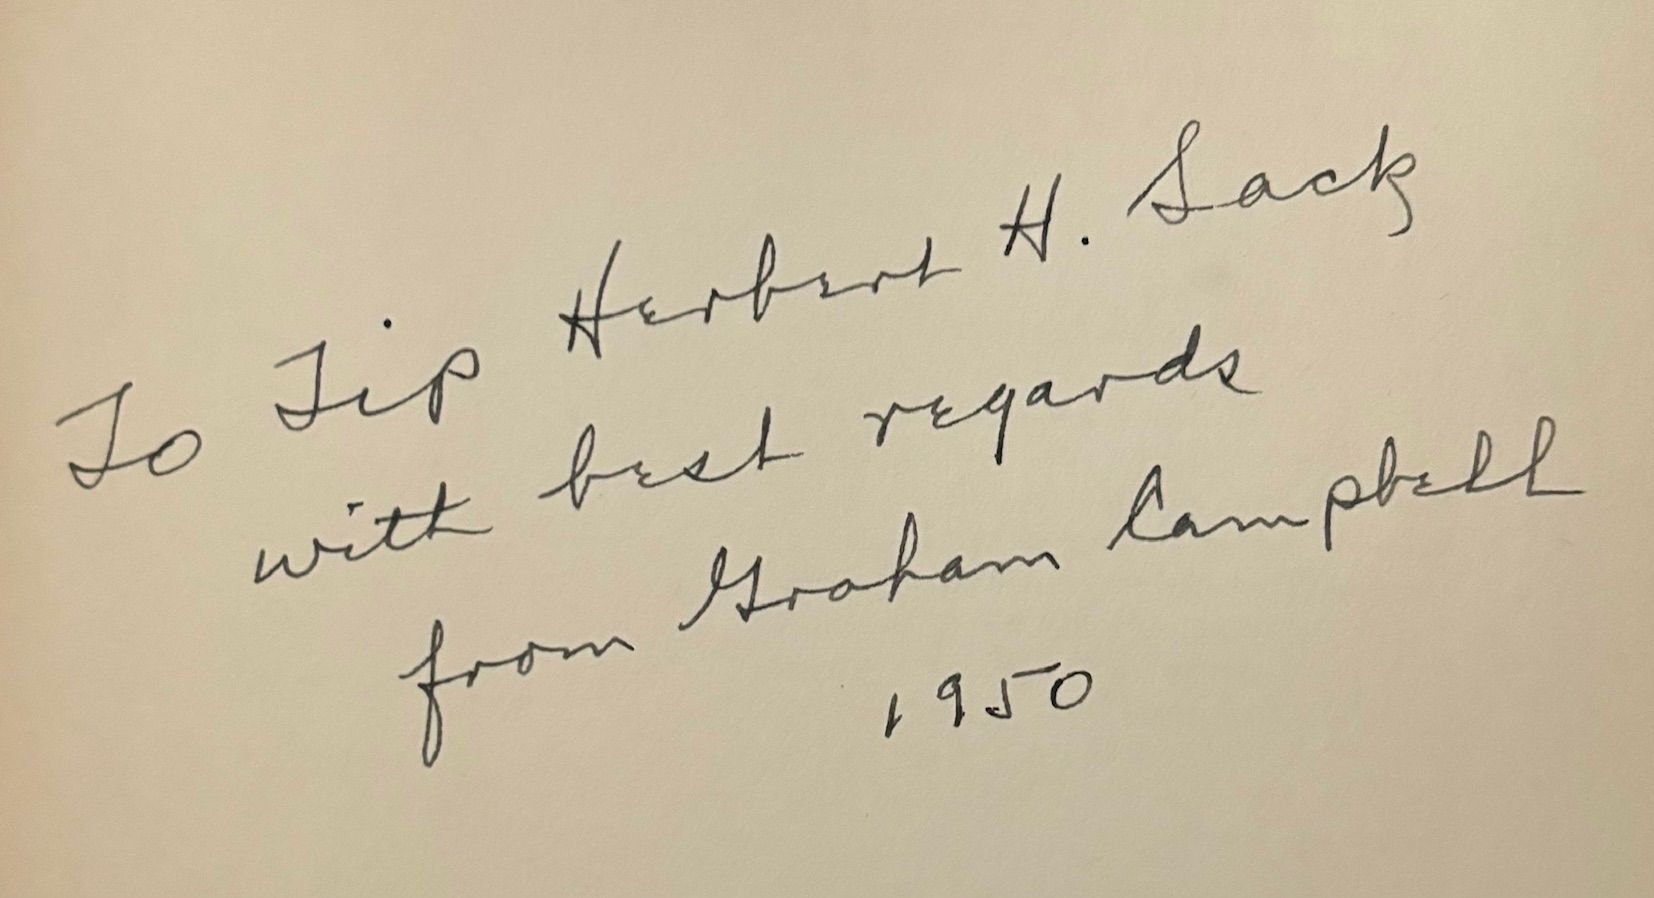 To Tip Herbert H. Sack
with best regards
from Graham Campbell
1950